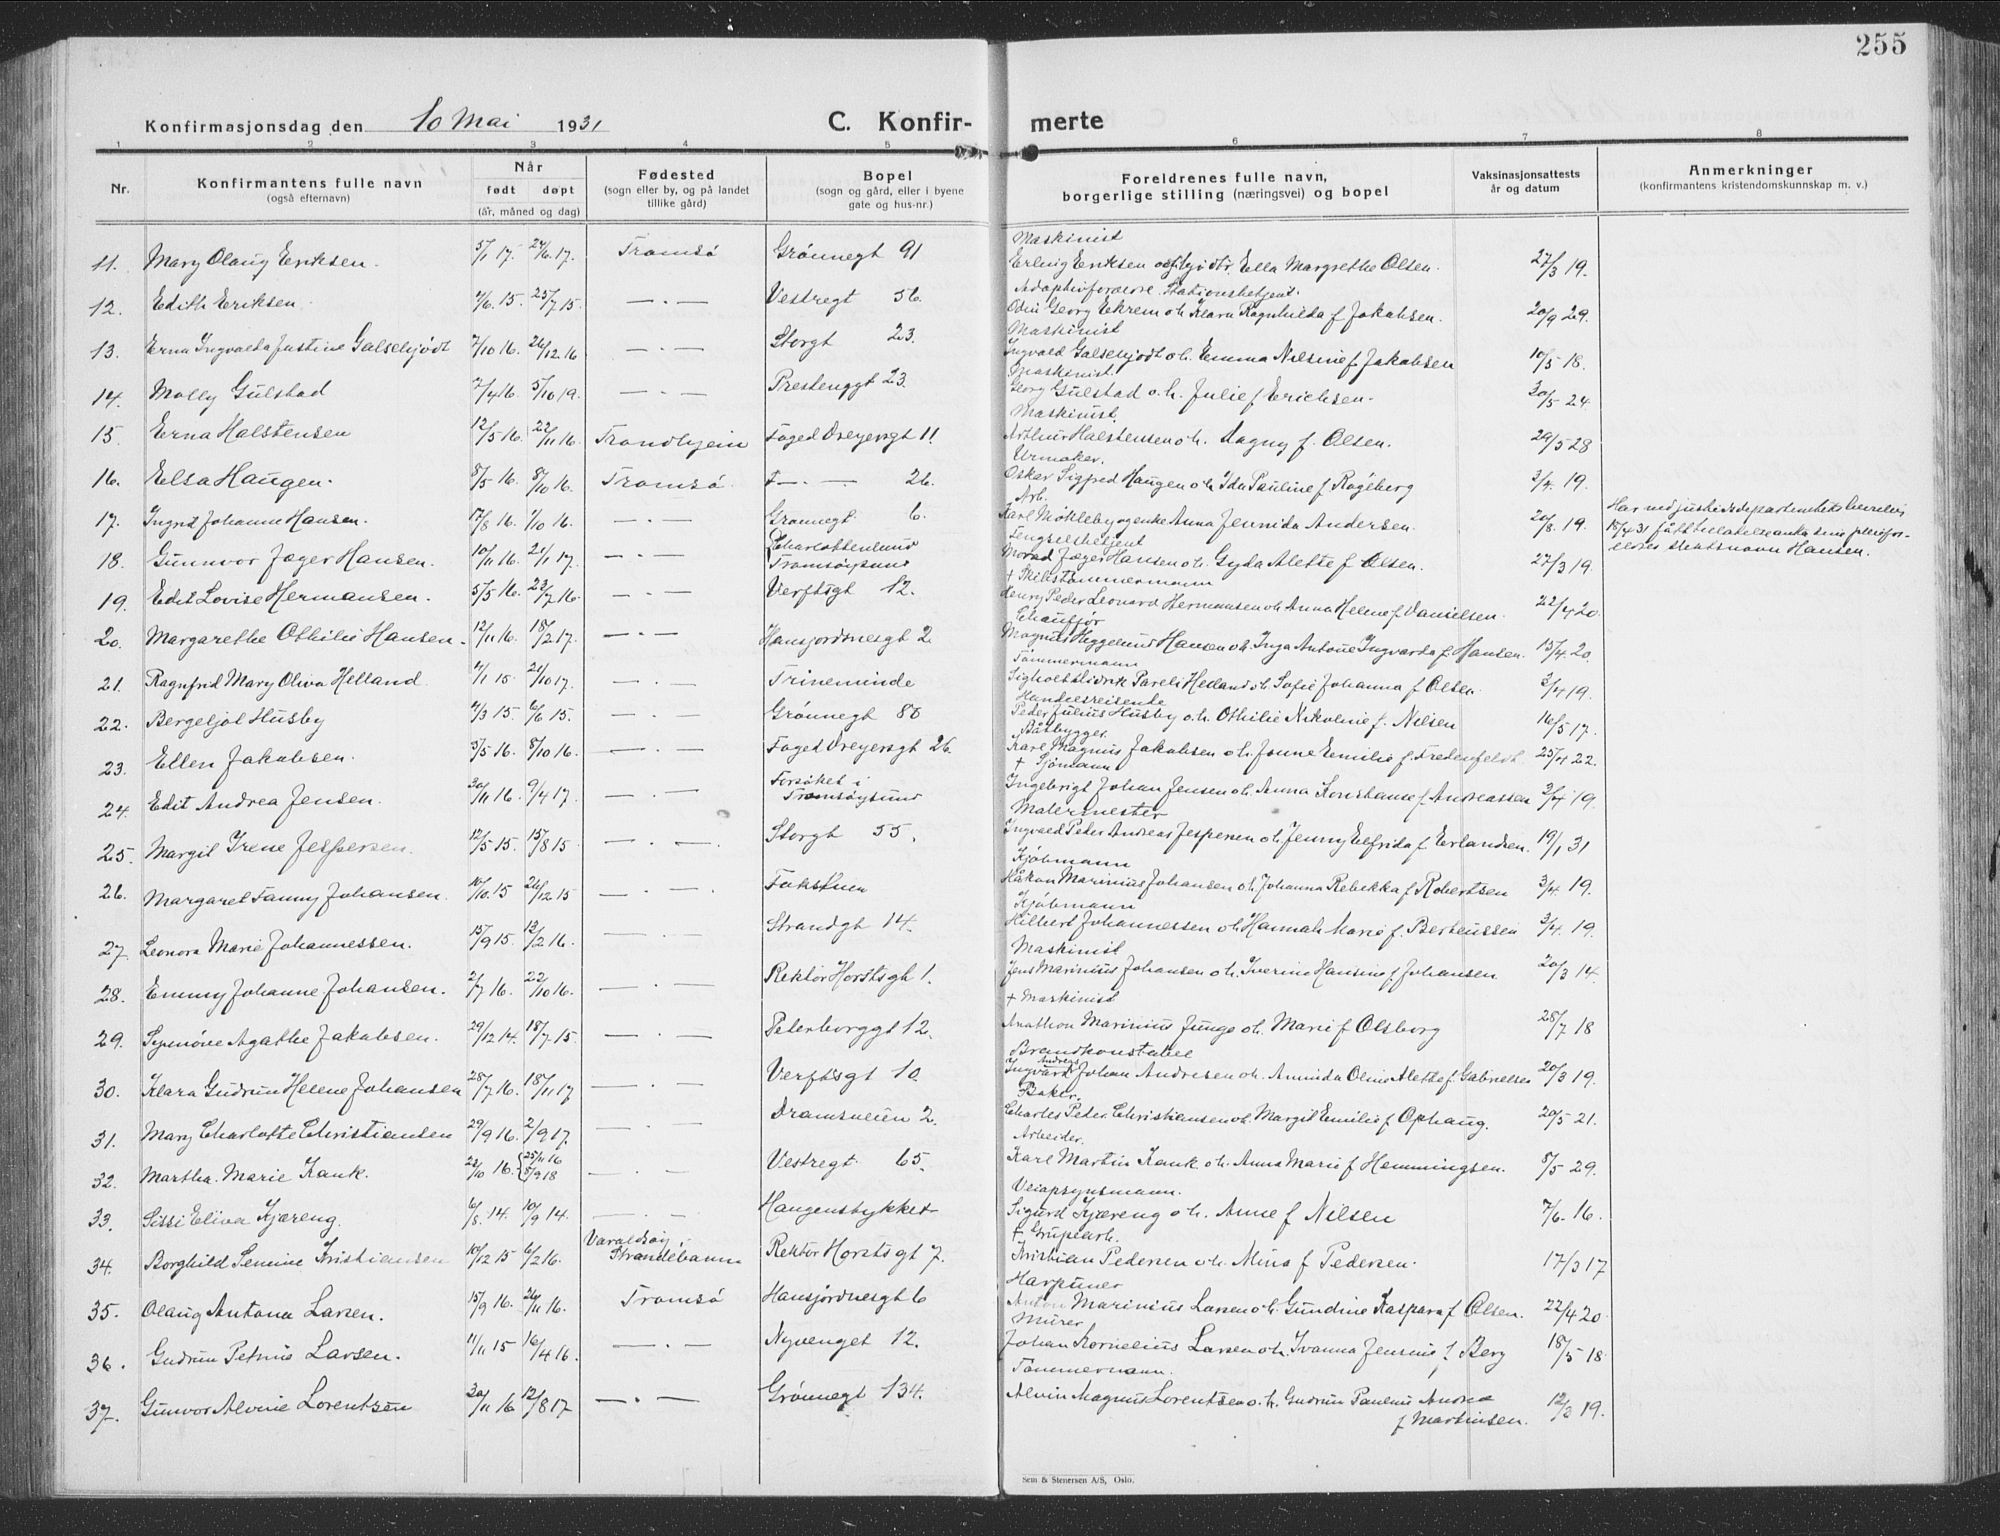 255
Konfirmasjonsdag den 10 Mai 1931
C. Konfir-
merte
1 2 3 4 5 6 7 8
Nr.
Konfirmantens fulle navn
(også efternavn)
Når
født døpt
(år, måned og dag)
Fødested
(sogn eller by, og på landet
tillike gård)
Bopel
(sogn og gård, eller i byene
gate og hus-nr.)
Foreldrenes fulle navn,
borgerlige stilling (næringsvei) og bopel
Vaksinasjonsattests
år og datum
Anmerkninger
(konfirmantens kristendomskunnskap m. v.)
Maskinist
11. Mary Olaug Eriksen. 5/1 17. 24/6. 17. Tromsø Grønnegt 91 Erling Eriksen Ella Margrethe Olsen. 27/3 19.
Adoptivforældre. Stationsbetjent.
12. Edith Eriksen. 4/6. 15. 25/7 15. — . — Vestregt 56. Odin Georg Ekrem o.h. Klara Ragnhilda f. Jakobsen. 20/9 29.
Maskinist
13. Erna Ingvalda Justine Galschjødt 7/10 16. 26/12 16 — . — Storgt 23. Ingvald Galschjødt o.h. Emma Nilsine f. Jakobsen 10/5 18.
Maskinist.
14. Molly Gulstad 7/4 16. 5/10 19. — . — Prestenggt 23. Georg Gulstad o.h. Julie f. Erichsen. 30/5 24.
Maskinist.
15. Erna Halstensen 12/5 16. 22/11 16. Trondhjem Foged Dreyersgt 11. Arthur Halstensen o.h. Aagny f. Olsen. 29/5 28
Urmaker.
16. Elsa Haugen. 8/5 16. 8/10 16. Tromsø. F — . — 26. Oskar Sigfred Haugen o.h. Ida Pauline f. Røgeberg 3/4. 19.
Arb.
17. Ingrid Johanne Hansen. 17/8 16. 1/10 16. — . — Grønnegt 6. Karl Mökleby og enke Anna Jennida Andersen. 20/8. 19. Har ved justisdepartementets bevilln.
15/4 31 fått tillatelse anta sine plejefor-
eldres slektsnavn Hansen.
Fengselsbetjent
18. Gunnvor Jæger Hansen. 10/11 16. 21/1 17. — . — Charlottenlund Tromsøysund Morad Jæger Hansen o.h. Gyda Alette f. Olsen. 27/3 19.
+ Skibstømmermann
19. Edit Lovise Hermansen. 5/5 16. 23/7 16. — . — Verftsgt 12. Henry Peder Leonard Hermansen o.h. Anna Helene f. Danielsen. 22/4 20.
Chauffør
20. Margarethe Othilie Hansen. 12/11 16. 18/2 17. — . — Hansjordnesgt 2. Magnus Heggelund Hansen o.h. Inga Antone Ingvarda f. Hansen. 15/4. 20.
Tømmermann
21. Ragnfrid Mary Oliva Helland 4/1 15. 21/10 17. — . — Trineminde Pareli Helland o.h. Sofie Johanna f. Olsen. 3/4 19.
Handelsreisende
22. Bergeljot Husby 4/3 15. 6/6 15. — . — Grønnegt 88 Peder Julius Husby o.h. Othilie Nikoline f. Nilsen 16/5 17.
Båtbygger.
23. Ellen Jakobsen. 3/5 16. 8/10 16. — . — Foged Dreyersgt 26. Karl Magnus Jakobsen o.h. Jonne Eemilie f. Fredenfeldt. 25/4 22.
+ Sjømann
24. Edit Andrea Jensen. 30/11 16. 9/4 17. — . — Forsøket i Tromsøysund Ingebrigt Johan Jensen o.h. Anna Konstanse f. Andreassen 3/4 19.
Malermester
25. Margit Irene Jespersen. 12/5 15. 15/8 15 — . — Storgt 55. Ingvald Peder Andreas Jespersen o.h. Jenny Elfrida f. Erlandsen. 19/1 31
Kjøbmann
26. Margaret Fanny Johansen. 10/10. 15 26/12 15 — . — . Håkon Marinius Johansen o.h. Johanna Rebekka f. Robertsen 3/4. 19.
Kjøbmann
27. Leonora Marie Johannessen. 15/9 15. 13/2 16. — . — Strandgt 14. Hilbert Johannessen o.h. Hannah Marie f. Berteussen 3/4. 19.
Maskinist
28. Emmy Johanne Johansen. 2/7 16. 22/10 16. — . — Rektor Horstsgt 1. Jens Marinius Johansen o.h. Iverine Hansine f. Johansen 20/3 14.
+ Maskinist
29. Synnöve Agathe Jakobsen. 29/12 14. 18/7 15. — . — Peterborggt 12. Anathon Marinius Junge o.h. Marie f. Olsborg 28/7 18
Brandkonstabel
30. Klara Gudrun Helene Johansen 28/7 16. 18/11 17 — . — Verftsgt 10. Ingvard Andreas Johan Andresen o.h. Aminda Oline Alette f. Gabrielsen 20/3 19.
Baker.
31. Mary Charlotte Christiansen 29/9 16. 2/9 17. — . — Dramsveien 2. Charles Peder Christiansen o.h. Margit Emilie f. Ophaug. 20/5 21.
Arbeider.
32. Martha Marie Kank. 22/10 16. {25/11 16 8/9 18 — . — Vestregt 65. Karl Martin Kank o.h. Anna Marie f. Hemmingsen. 8/5 29.
Veiopsynsmann.
33. Sissi Eliva Kjæreng. 6/8. 14. 10/9 14. — . — Haugensstykket Sigurd Kjæreng o.h. Anne f. Nilsen 7/6. 16.
+ Grubearb.
34. Borghild Senine Kristiansen 10/12 15 6/2 16. Varaldsøy Strandebarm Rektor Horstsgt 7. Kristian Pedersen o.h. Mina f. Pedersen. 17/3 17
Harpuner
35. Olaug Antona Larsen. 15/9 16. 26/11 16. Tromsø Hansjordnesgt 6 Anton Marinius Larsen o.h. Gundine Kaspara f. Olsen. 22/4 20.
Murer
36. Gudrun Petrine Larsen. 11/11 15 16/4 16. — . — Nyvenget 12. Johan Kornelius Larsen o.h. Ivanna Jensine f. Berg 18/5 18.
Tømmermann.
37. Gunvor Alvine Lorentsen 30/11 16 12/8 17 — . — Grønnegt 134. Alvin Magnus Lorentsen o.h. Gudrun Pauline Andrea
f. Martinsen. 12/3 19.
Sem & Stenersen A/S, Oslo.